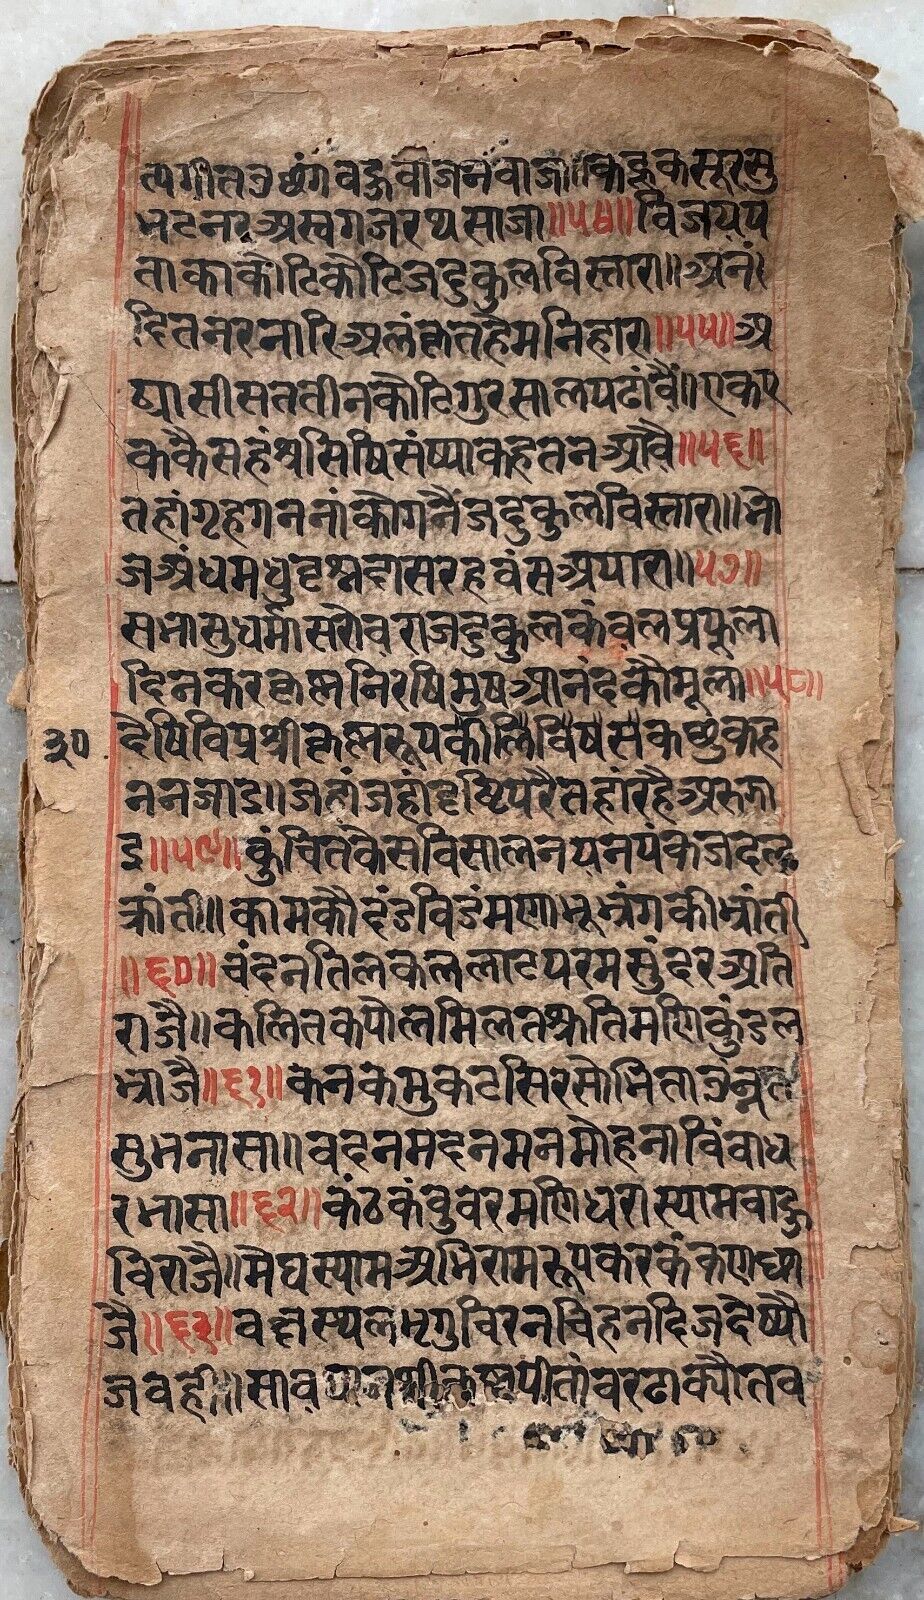 त्यगीतउछंगबहुबाजनबाजा।किहूकसूरसु
भटनरअस्वगजरथसाजा॥५४॥विजयप
ताकाकौटिकौटिजदुकुलविस्तारा॥अनं
दितनरनारिअलंकृतहैमनिहारा॥५५॥अ
ष्यासीसततीनकौटिगुरसालपढांवैं॥एकए
ककैसहंश्रसिषिसंष्याकहतनआवै॥५६॥
तहांगृहगननांकौगनैंजदुकुलविस्तारा॥भो
जअंधमधुदृश्नदासरहवंसअपारा॥५७॥
सभासुधर्मासरौवराजदुकुलकंवलप्रफूला
दिनकरकृष्णनिरषिमुषआनंदकौमूला॥५८॥
३०
दैषिविप्रश्रीकृष्णरूपकौंलिविषसकछुकह
ननजाइ॥जहांजहांदृष्टिपरैतहांरहैअरुझा
इ॥५९॥कुंचितकैसविसालनयनपंकजदल
क्रांती॥कामकौदंडविडंमणाभूभ्रंगकीभ्रांती
॥६०॥चंदनतिलकललाटपरमसुंदरअति
राजै॥कलितकपौलमिलतश्रुतिमणिकुंडल
भ्राजै॥६१॥कनकमुकटसिरसोभिताउंन्नत
सुभनासा॥वदनमदनमनमौहनाविंबाध
रभासा॥६२॥कंठकंबुवरमणिधरास्यामबाहु
विराजै॥मैघस्यामअभिरामरूपकरकंकणछा
जै॥६३॥वक्षस्थलभृगुविरनचिहनदिजदैष्यौ
जबही॥सावधानश्रीकृष्णपीतांबरढाक्यौतब